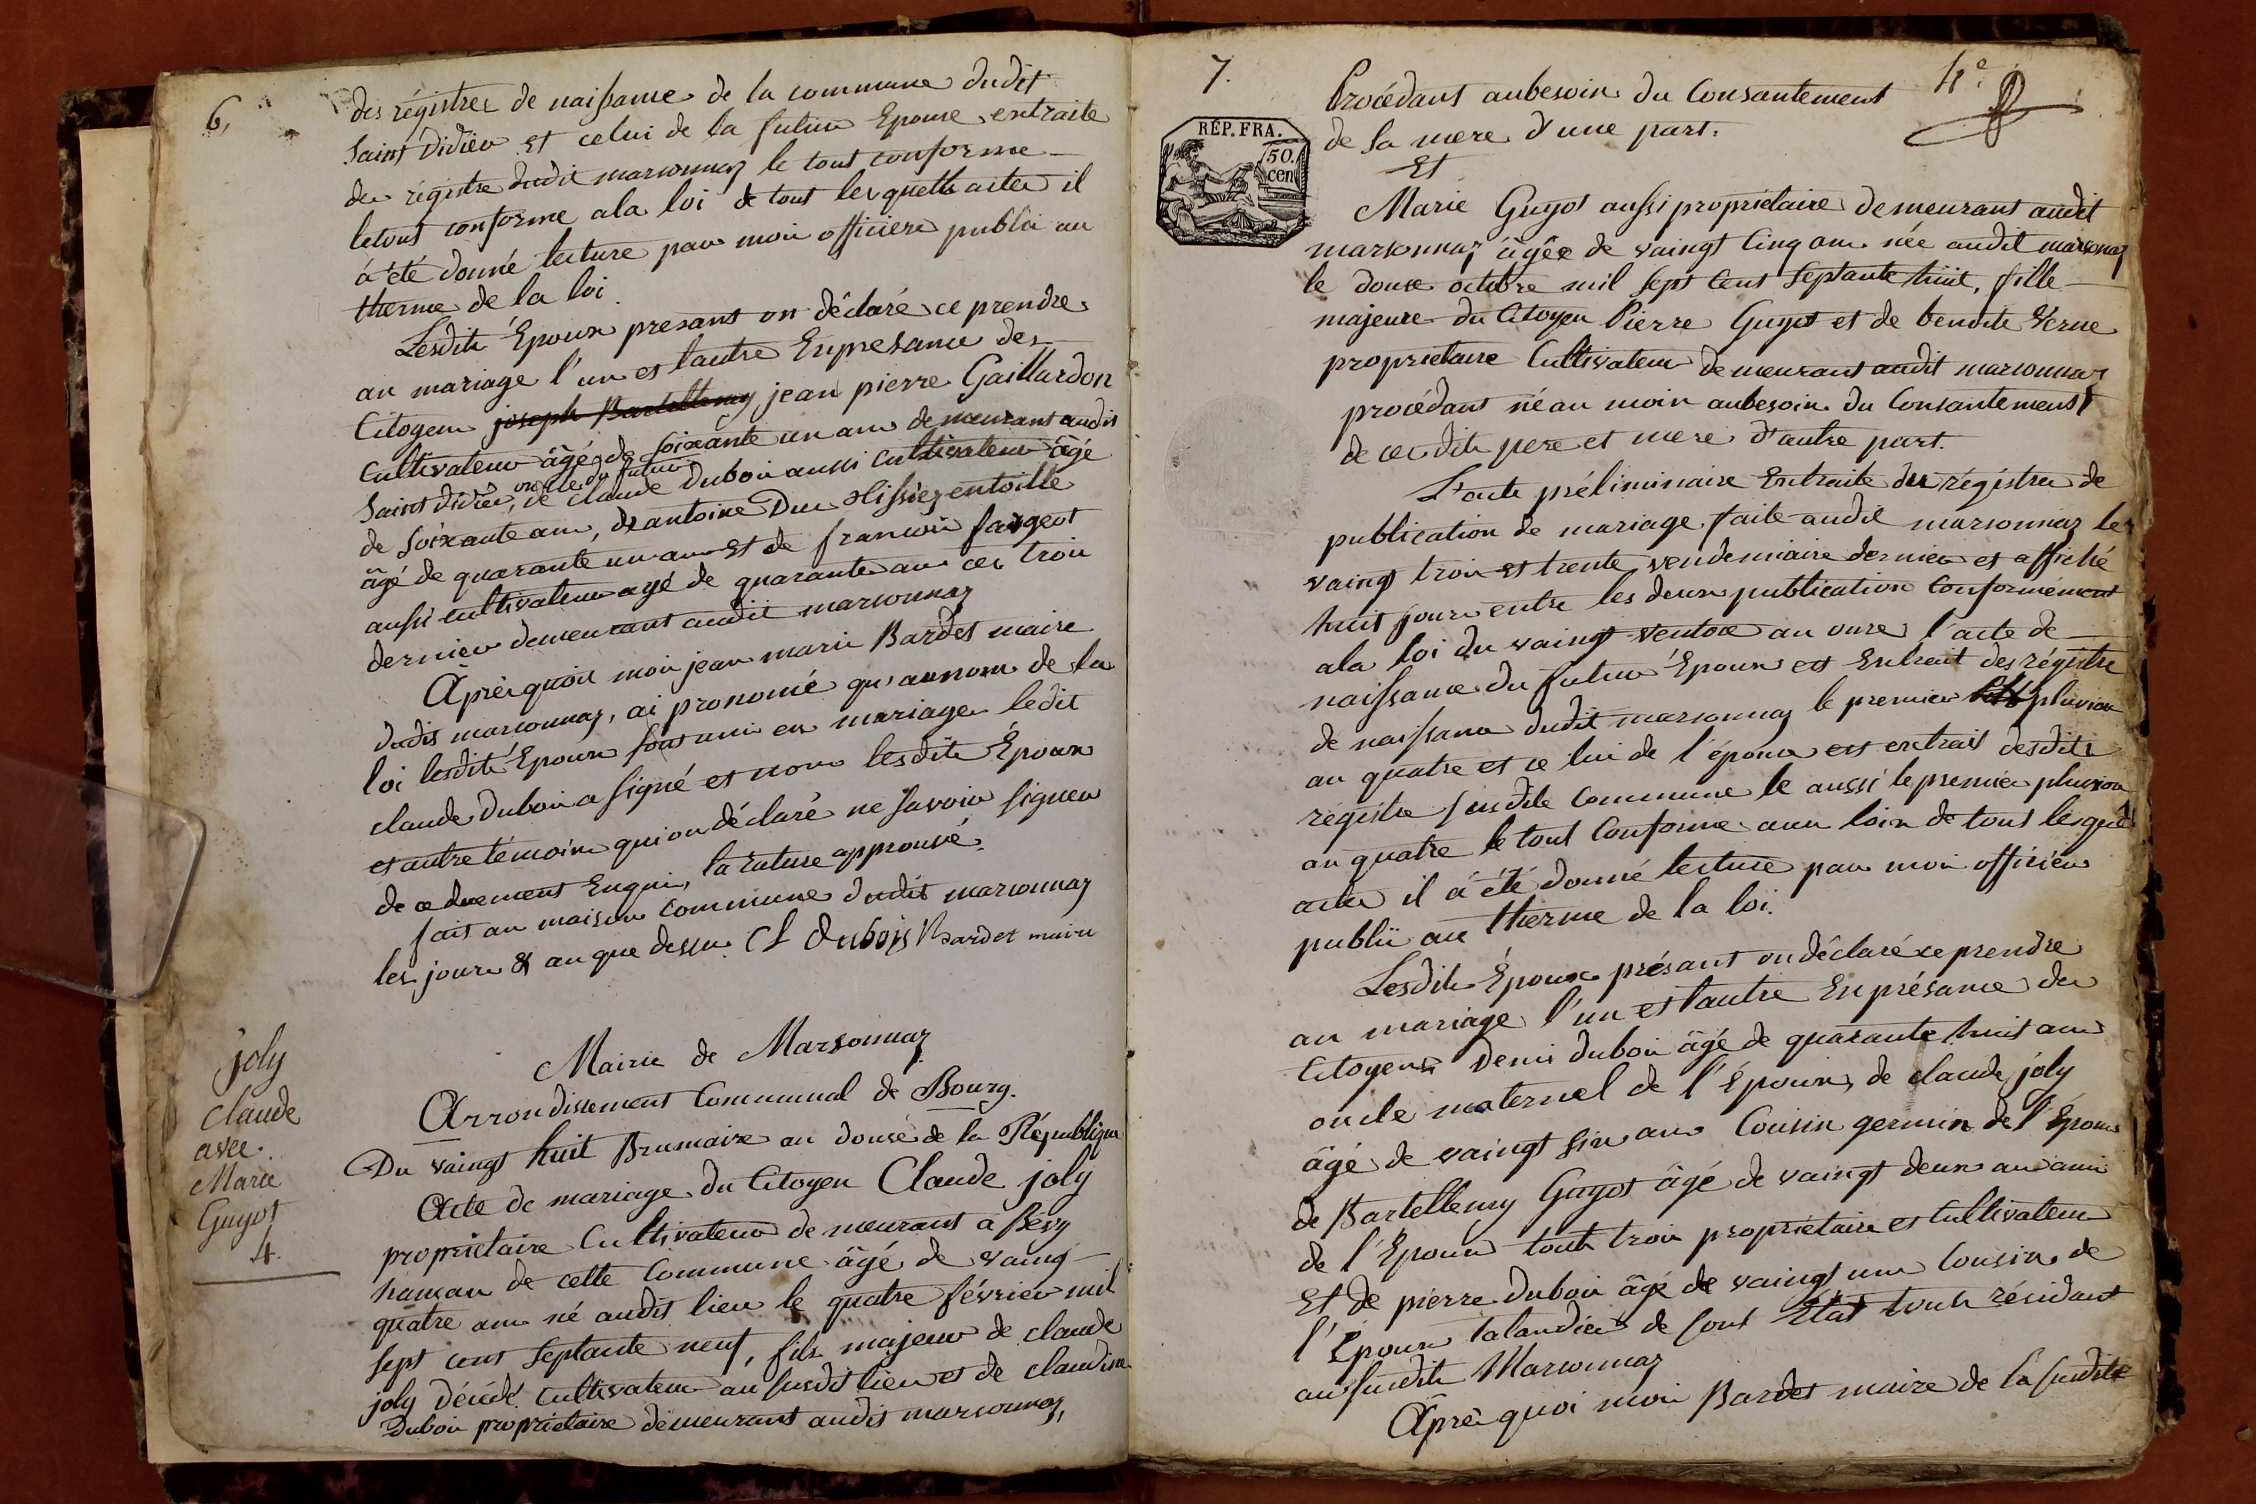 6,
des régistrec de naissance de la commune dudit
Saint Didier et celui de la future Epouse, extraite
des régistre dudit marsonnaz le tout conforme
letout conforme ala loi de tout lesquells actes il
à été donné lecture par moi officiere public au
therme de la loi.
Lesdits Epoux presant on déclaré ce prendre
an mariage l'un et lautre En presance des
Citoyen joseph Bartellemy jean pierre Gaillardon
Cultivateur âgé de soixante un ans demeurant audit
Saint Didier, oncle du futur, de Claude Duboi aussi cultivateur âgé
de soixante ans, de antoine Duc tissier en toille
âgé de quarante un ans et de francois fargeot
aussi cultivateur agé de quarante ans ces troi
dernier demeurant audit marsonnaz
Après quoi moi jean marie Bardet maire
dudit marsonnaz, ai prononcé qu'au nom de la
loi lesdits Epoux sont uni en mariage ledit
claude duboi a signé et non lesdits Epoux
et autre témoins qui on déclaré ne savoir signer
de ce duement Enqui, la rature approuvé.
fait an maison commune dudit marsonnaz
les jour & an que dessu. Cl Dubois Bardet maire
joly
Claude
avec.
Marie
Guyot
4.
Mairie de Marsonnaz
Arrondissement Communal de Bourg.
Du vaingt huit Brumaire an douse de la République
Acte de mariage du Citoyen Claude joly
propriétaire Cultivateur demeurant à Bévy
hamau de cette Commune âgé de vaing
quatre ans né audit lieu le quatre février mil
sept cent septante neuf, fils majeur de claude
joly décédé cultivateur au susdit lieu et de claudine
Duboi propriétaire demeurant audit marsonnaz,
7.
4e
RÉP. FRA.
50.
cen
Procédant aubesoin du Consantement
de sa mere d'une part.
Et
Marie Guyot aussi propriétaire demeurant audit
marsonnaz âgée de vaingt Cinq ans née audit marsonnaz
le douse octobre mil sept Cent Septante huit, fille
majeure du Citoyen Pierre Guyot et de benoite Verne
proprietaire Cultivateur demeurant audit marsonnaz
procédant né an moin aubesoin du Consantement
de ces dits pere et mere d'autre part.
L'acte préliminaire Extraite des régistres de
publication de mariage faite audit marsonnaz les
vaingt troi et trente vendemiaire dernier et affiché
huit jours entre les deux publication Conformément
ala loi du vaingt ventose an onse, l'acte de
naissance du futur Epoux est Extrait des régistre
de naissance dudit marsonnaz le premier pluviose
an quatre et ce lui de l'épouse est extrait desdits
régistre susdite commune le aussi le premier pluviose
an quatre le tout Conforme aux loix de tout lesquels
actes il à été donné lecture par moi officier
public au therme de la loi.
Lesdits Époux présant on déclaré ce prendre
an mariage l'un et lautre En présance des
Citoyens Deni duboi âgé de quarante huit ans
oncle maternel de l'Epoux, de claude joly
âgé de vaingt six ans Cousin germin de l'Epoux
de Bartellemy Guyot âgé de vaingt deux ans ami
de l'Epoux tout troi proprietaire et Cultivateur
Et de pierre duboi âgé de vaingt un Cousin de
l'Epoux talandier de sont Etat touts résidant
au susdit Marsonnaz
Après quoi moi Bardet maire de la susdite